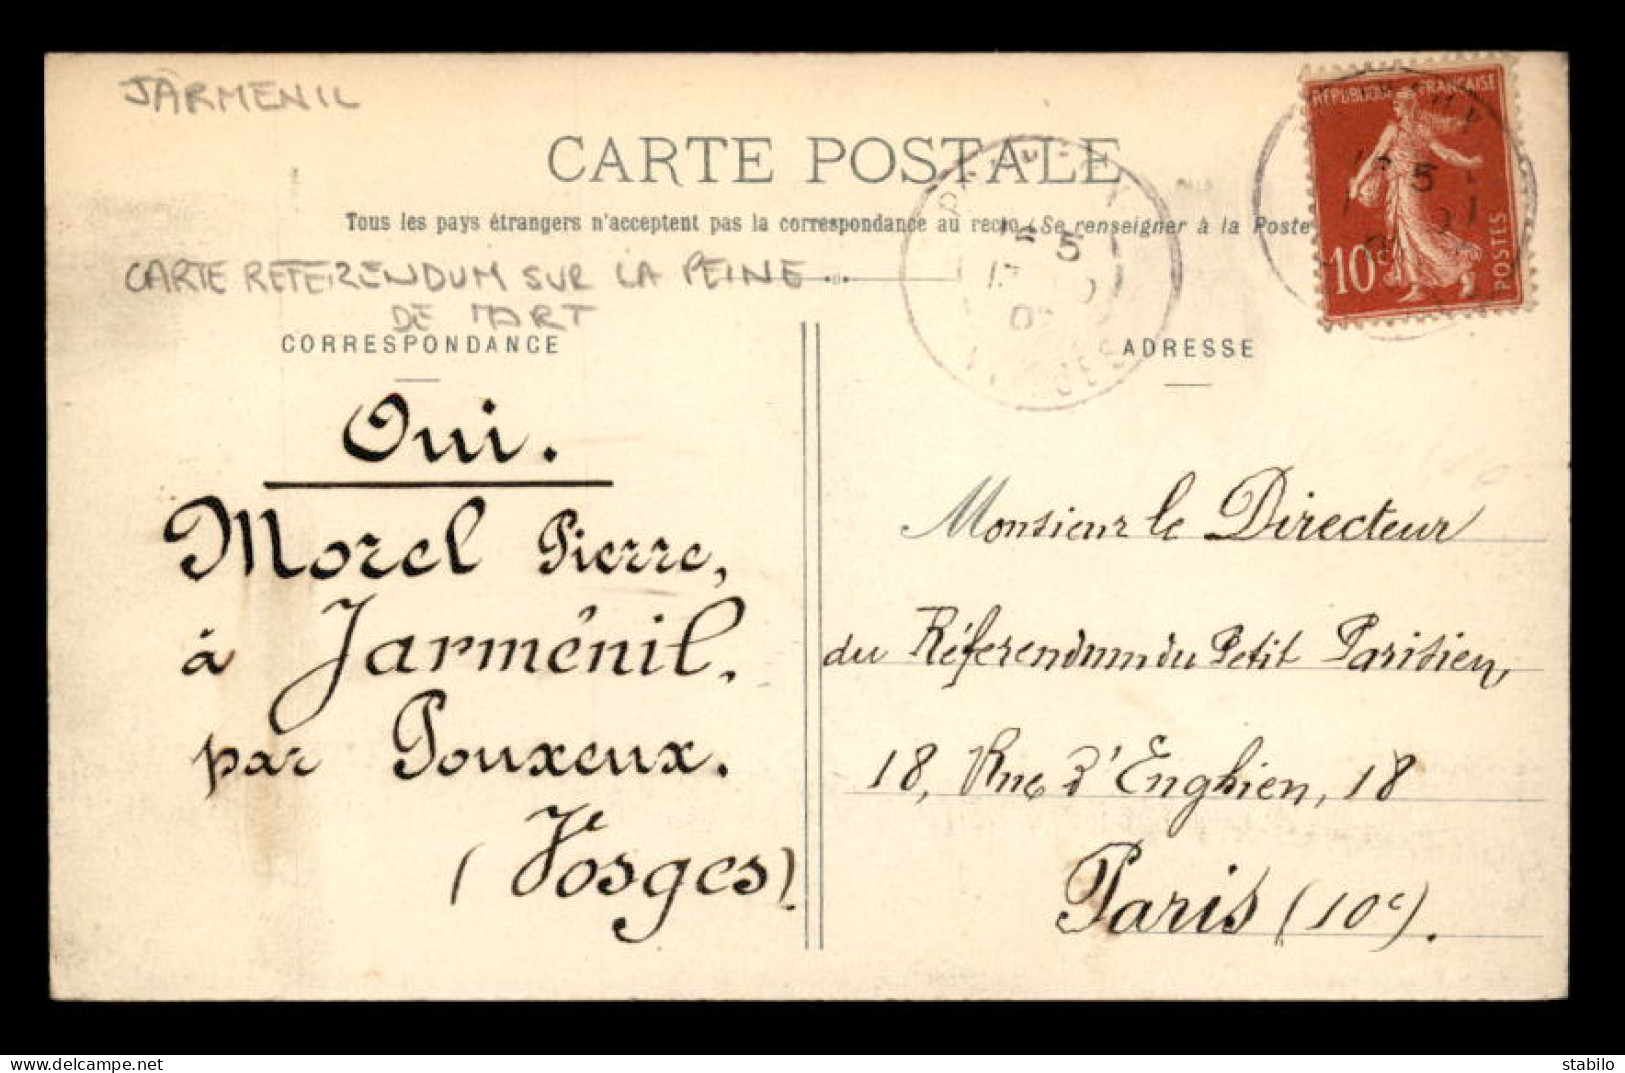 JARMENIL
CARTE POSTALE
Tous les pays étrangers n'acceptent pas la correspondance au recto (Se renseigner à la Poste
CARTE REFERENDUM SUR LA PEINE
DE MORT
CORRESPONDANCE
Oui.
Morel Pierre,
à Jarménil,
par Pouxeux.
(Vosges).
RÉPUBLIQUE FRANÇAISE
10c
POSTES
5
VOSGES
ADRESSE
Monsieur le Directeur
du Référendum du Petit Parisien,
18, Rue d'Enghien, 18
Paris (10e).
stabilo